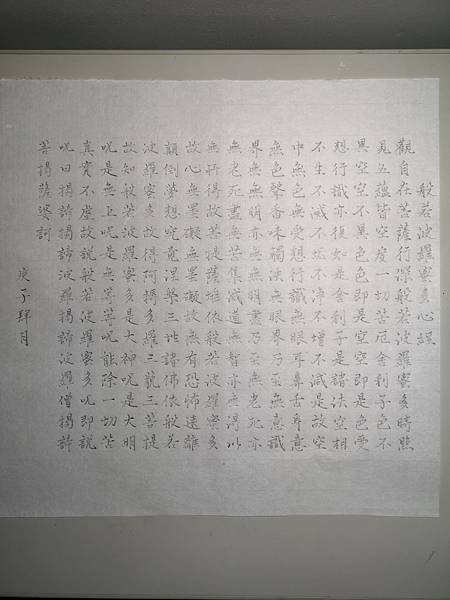 般若波羅蜜多心經
觀自在菩薩行深般若波羅蜜多時照
見五蘊皆空度一切苦厄舍利子色不
異空空不異色色即是空空即是色受
想行識亦復如是舍利子是諸法空相
不生不滅不垢不淨不增不減是故空
中無色無受想行識無眼耳鼻舌身意
無色聲香味觸法無眼界乃至無意識
界無無明亦無無明盡乃至無老死亦
無老死盡無苦集滅道無智亦無得以
無所得故菩提薩埵依般若波羅蜜多
故心無罣礙無罣礙故無有恐怖遠離
顛倒夢想究竟涅槃三世諸佛依般若
波羅蜜多故得阿耨多羅三藐三菩提
故知般若波羅蜜多是大神咒是大明
咒是無上咒是無等等咒能除一切苦
真實不虛故說般若波羅蜜多咒即說
咒曰揭諦揭諦波羅揭諦波羅僧揭諦
菩提薩婆訶
庚子肆月